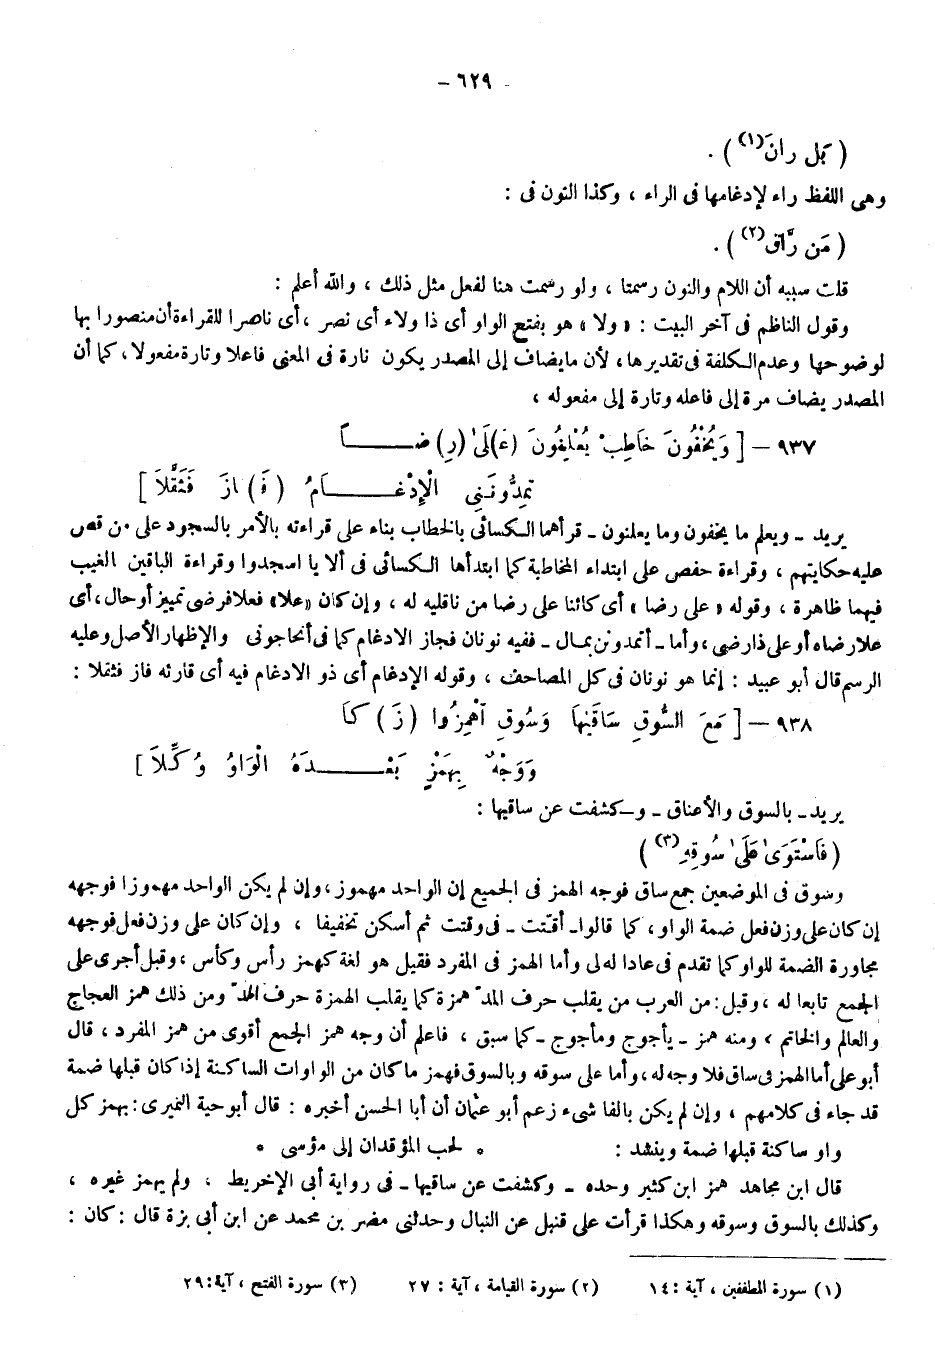 - ٦٢٩ –
( بَل رانَ(١) ) .
وهى اللفظ راء لإدغامها فى الراء ، وكذا النون فى :
( مَن رَّاق(٢) ) .
قلت سببه أن اللام والنون رسمتا ، ولو رسمت هنا لفعل مثل ذلك ، والله أعلم :
وقول الناظم فى آخر البيت : « ولا » هو بفتح الواو أى ذا ولاء أى نصر ، أى ناصرا للقراءة أن منصورا بها
لوضوحها وعدم الكلفة فى تقديرها ، لأن مايضاف إلى المصدر يكون نارة فى المعنى فاعلا وتارة مفعولا ، كما أن
المصدر يضاف مرة إلى فاعله وتارة إلى مفعوله ،
٩٣٧ – [ وَيُخْفُونَ خَاطِبْ يُعْلِفُونَ (عَ)لَىٰ (رِ) ضــــــاً
تمِدُّونَنِى الْإِدْغــــــامُ ( فَ ) ازَ فَثَقَّلاَ ]
يريد – ويعلم ما يخفون وما يعلنون – قرأهما الكسائى بالخطاب بناء على قراءته بالأمر بالسجود على من قص
عليه حكايتهم ، وقراءة حفص على ابتداء المخاطبة كما ابتدأها الكسائى فى ألا يا اسجدوا وقراءة الباقين الغيب
فيهما ظاهرة ، وقوله « على رضا » أى كائنا على رضا من ناقليه له ، وإن كان «علا» فعلا فرضى تمييز أو حال ، أى
علا رضاه أو على ذا رضى ، وأما – أتمدونن بمال – ففيه نونان فجاز الادغام كما فى أتحاجونى والإظهار الأصل وعليه
الرسم قال أبو عبيد : إنما هو نونان فى كل المصاحف ، وقوله الإدغام أى ذو الادغام فيه أى قارئه فاز فثقلا :
٩٣٨ – [ مَعَ السُّوقِ سَاقَيْهَا وَسُوقِ اَهْمِزُوا ( زَ ) كَا
وَوَجْهٌ بِهَمْزٍ بَعْــــــدَهُ الْوَاوُ وُكِّلاَ ]
يريد – بالسوق والأعناق – و – كشفت عن ساقيها :
( فَاسْتَوَىٰ عَلَىٰ سُوقِهِ(٣) )
وسوق فى الموضعين جمع ساق فوجه الهمز فى الجميع إن الواحد مهموز ، وإن لم يكن الواحد مهموزا فوجهه
إن كان على وزن فعل ضمة الواو ، كما قالوا – أقتت – فى وقتت ثم أسكن تخفيفا ، وإن كان على وزن فعل فوجهه
مجاورة الضمة للواو كما تقدم فى عادا له لى وأما الهمز فى المفرد فقيل هو لغة كهمز رأس وكأس ، وقبل أجرى على
الجمع تابعا له ، وقيل : من العرب من يقلب حرف المدّ همزة كما يقلب الهمزة حرف المدّ ومن ذلك همز العجاج
والعالم والخاتم » ومنه همز – يأجوج ومأجوج – كما سبق ، فاعلم أن وجه همز الجمع أقوى من همز المفرد ، قال
أبو على أما الهمز فى ساق فلا وجه له ، وأما على سوقه وبالسوق فهمز ما كان من الواوات الساكنة إذا كان قبلها ضمة
قد جاء فى كلامهم ، وإن لم يكن بالفا شىء زعم أبو عثمان أن أبا الحسن أخبره : قال أبو حية النميرى : يهمز كل
واو ساكنة قبلها ضمة وينشد : * لحب المؤقدان إلى مؤسى *
قال ابن مجاهد همز ابن كثير وحده – وكشفت عن ساقيها – فى رواية أبى الإخريط ، ولم يهمز غيره ،
وكذلك بالسوق وسوقه وهكذا قرأت على قنبل عن النبال وحدثنى مضر بن محمد عن ابن أبى بزة قال : كان :
(١) سورة المطففين ، آية : ١٤ (٢) سورة القيامة ، آية : ٢٧ (٣) سورة الفتح ، آية : ٢٩